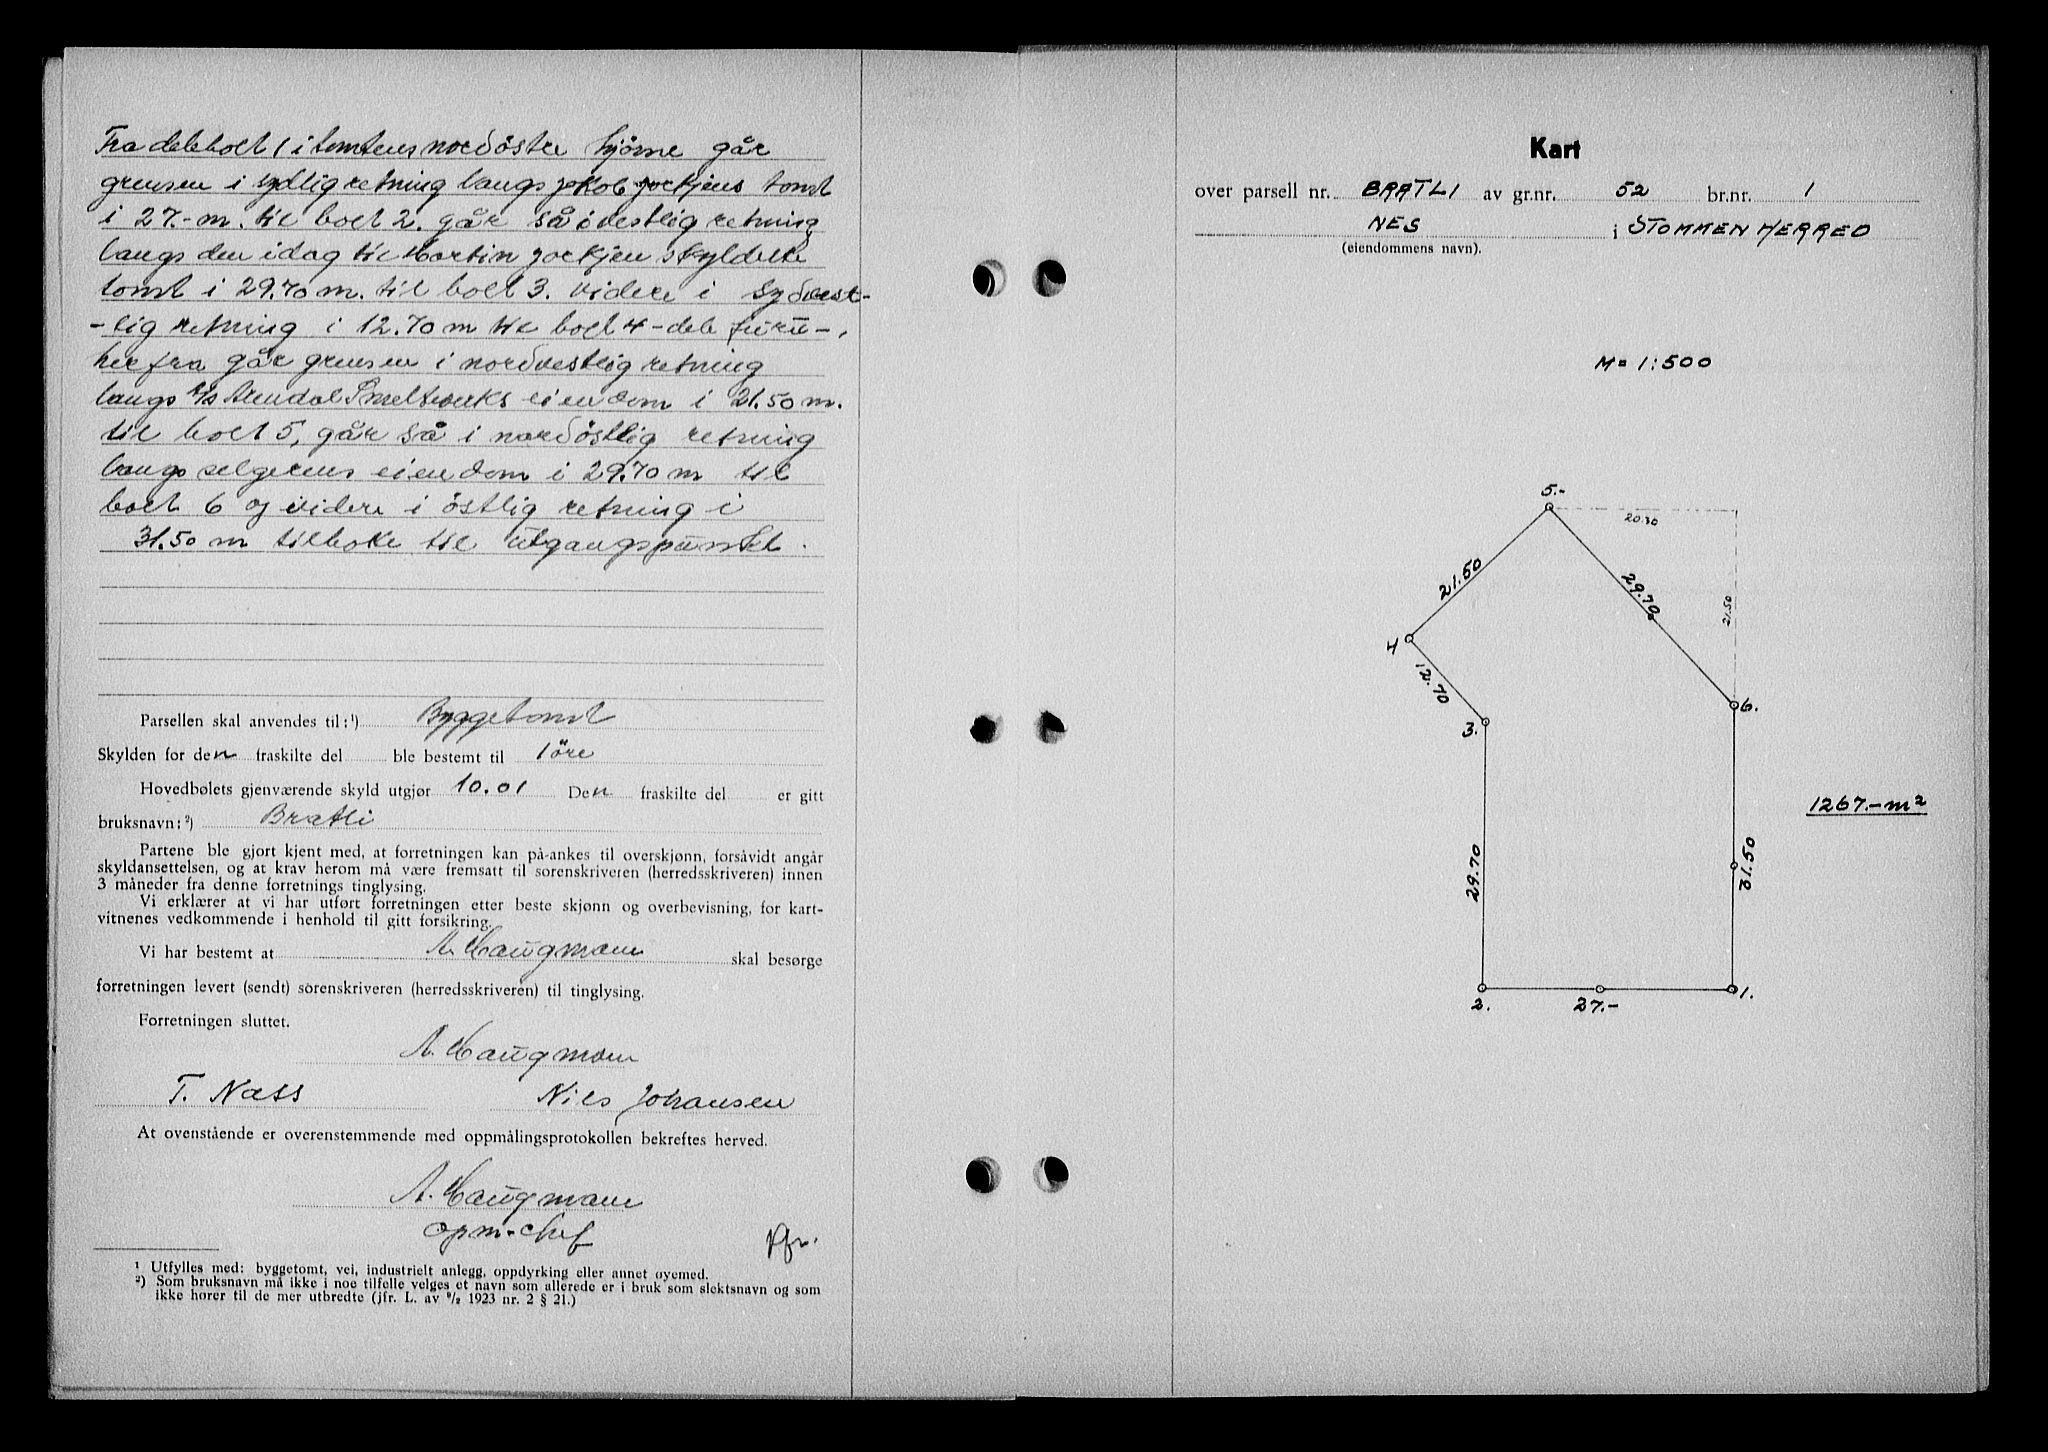 Fra delebolt 1 i tomtens nordöstre hjörne går
grensen i sydlig retning langs Jakob Jorkjens tomt
i 27.-m. til bolt 2. går så i vestlig retning
langs den idag til Martin Jorkjen skyldelte
tomt i 29.70 m. til bolt 3. videre i sydvest-
-lig retning i 12.70 m til bolt 4 - dele furu -,
her fra går grensen i nordvestlig retning
langs A/S Arendal Smelteverks eiendom i 21.50 m.
til bolt 5, går så i nordöstlig retning
langs selgerens eiendom i 29.70 m til
bolt 6 og videre i östlig retning i
31.50 m tilbake til utgangspunkt.
Parsellen skal anvendes til: ¹) Byggetomt
Skylden for den fraskilte del ble bestemt til 1 öre
Hovedbølets gjenværende skyld utgjør 10.01 Den fraskilte del er gitt
bruksnavn: ²) Bratli
Partene ble gjort kjent med, at forretningen kan på-ankes til overskjønn, forsåvidt angår
skyldansettelsen, og at krav herom må være fremsatt til sorenskriveren (herredsskriveren) innen
3 måneder fra denne forretnings tinglysing.
Vi erklærer at vi har utført forretningen etter beste skjønn og overbevisning, for kart-
vitnenes vedkommende i henhold til gitt forsikring.
Vi har bestemt at A. Haugmann skal besørge
forretningen levert (sendt) sorenskriveren (herredsskriveren) til tinglysing.
Forretningen sluttet.
A. Haugmann
T. Næss Nils Johansen
At ovenstående er overenstemmende med oppmålingsprotokollen bekreftes herved.
A. Haugmann
opm.chef
¹ Utfylles med: byggetomt, vei, industrielt anlegg, oppdyrking eller annet øyemed.
²) Som bruksnavn må ikke i noe tilfelle velges et navn som allerede er i bruk som slektsnavn og som
ikke hører til de mer utbredte (jfr. L. av ⁹/₂ 1923 nr. 2 § 21.)
Kart
over parsell nr. BRATLI av gr.nr. 52 br.nr. 1
NES i STOMMEN HERRED
(eiendommens navn).
M = 1:500
5.-
20.30
21.50
29.70
21.50
4
12.70
6.
3.
1267.- m²
29.70
31.50
2. 27.- 1.